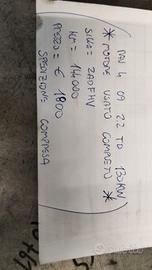 MAN 4 09 22 TD 130KW
* MOTORE USATO COMPLETO *
SIGLA = 2ADFHV
KM = 114.000
PREZZO = € 1800
SPEDIZIONE COMPRESA